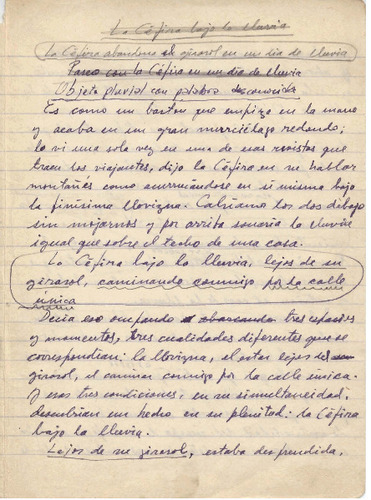 La Céfira bajo la lluvia
La Céfira abandona el girasol en un día de lluvia
Paseo con la Céfira en un día de lluvia
Objeto pluvial con palabra desconocida
Es como un bastón que empieza en la mano
y acaba en un gran murciélago redondo;
lo vi una sola vez en una de esas revistas que
traen los viajantes, dijo la Céfira en su hablar
montañés como acurrucándose en sí misma bajo
la finísima llovizna. Cabríamos los dos debajo
sin mojarnos y por arriba sonaría la lluvia
igual que sobre el techo de una casa.
La Céfira bajo la lluvia, lejos de su
girasol, caminando conmigo por la calle
única
Decía eso ocupando tres espacios
y momentos, tres cualidades diferentes que se
correspondían: la llovizna, el estar lejos del
girasol, el caminar conmigo por la calle única.
Y esas tres condiciones, en su simultaneidad,
descubrían un hecho en su plenitud: la Céfira
bajo la lluvia.
Lejos de su girasol, estaba desprendida,